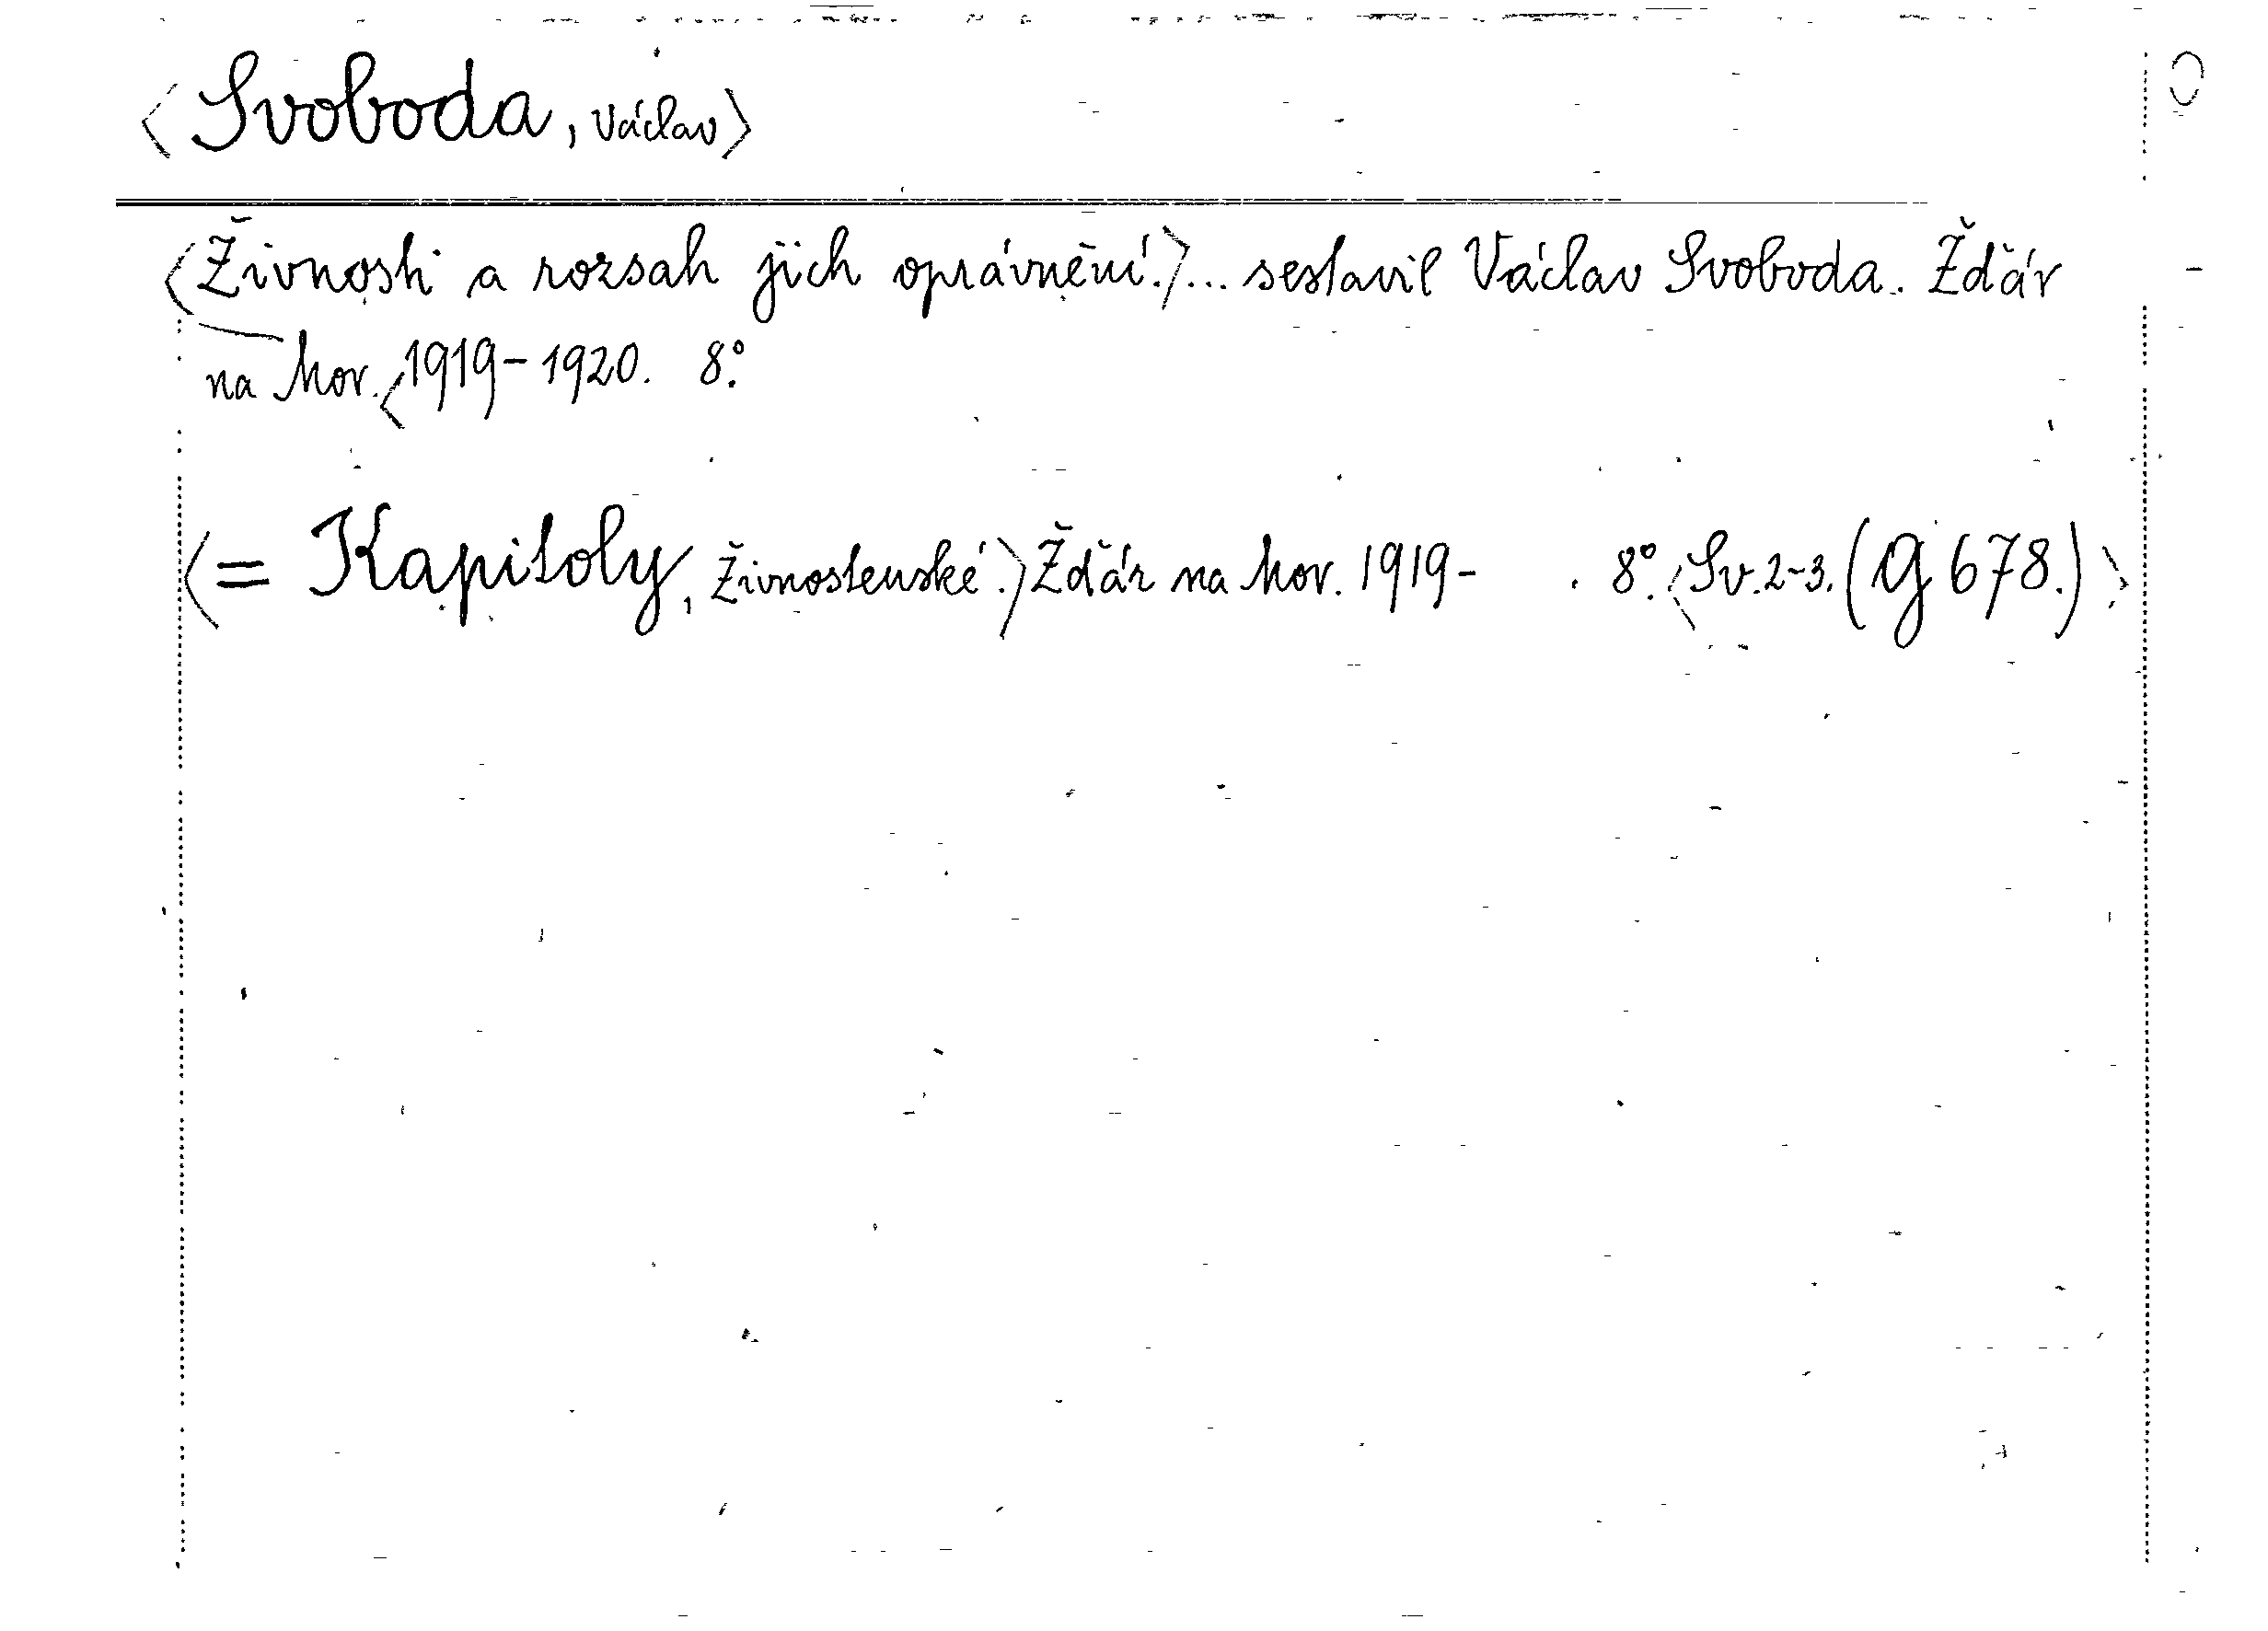 ⟨Svoboda, Václav⟩
⟨Živnosti a rozsah jich oprávnění.⟩... sestavil Václav Svoboda. Žďár
na Mor.⟨1919-1920. 8°.
⟨= Kapitoly, Živnostenské.⟩ Žďár na Mor. 1919- . 8°.⟨Sv. 2-3. (G 678.)⟩